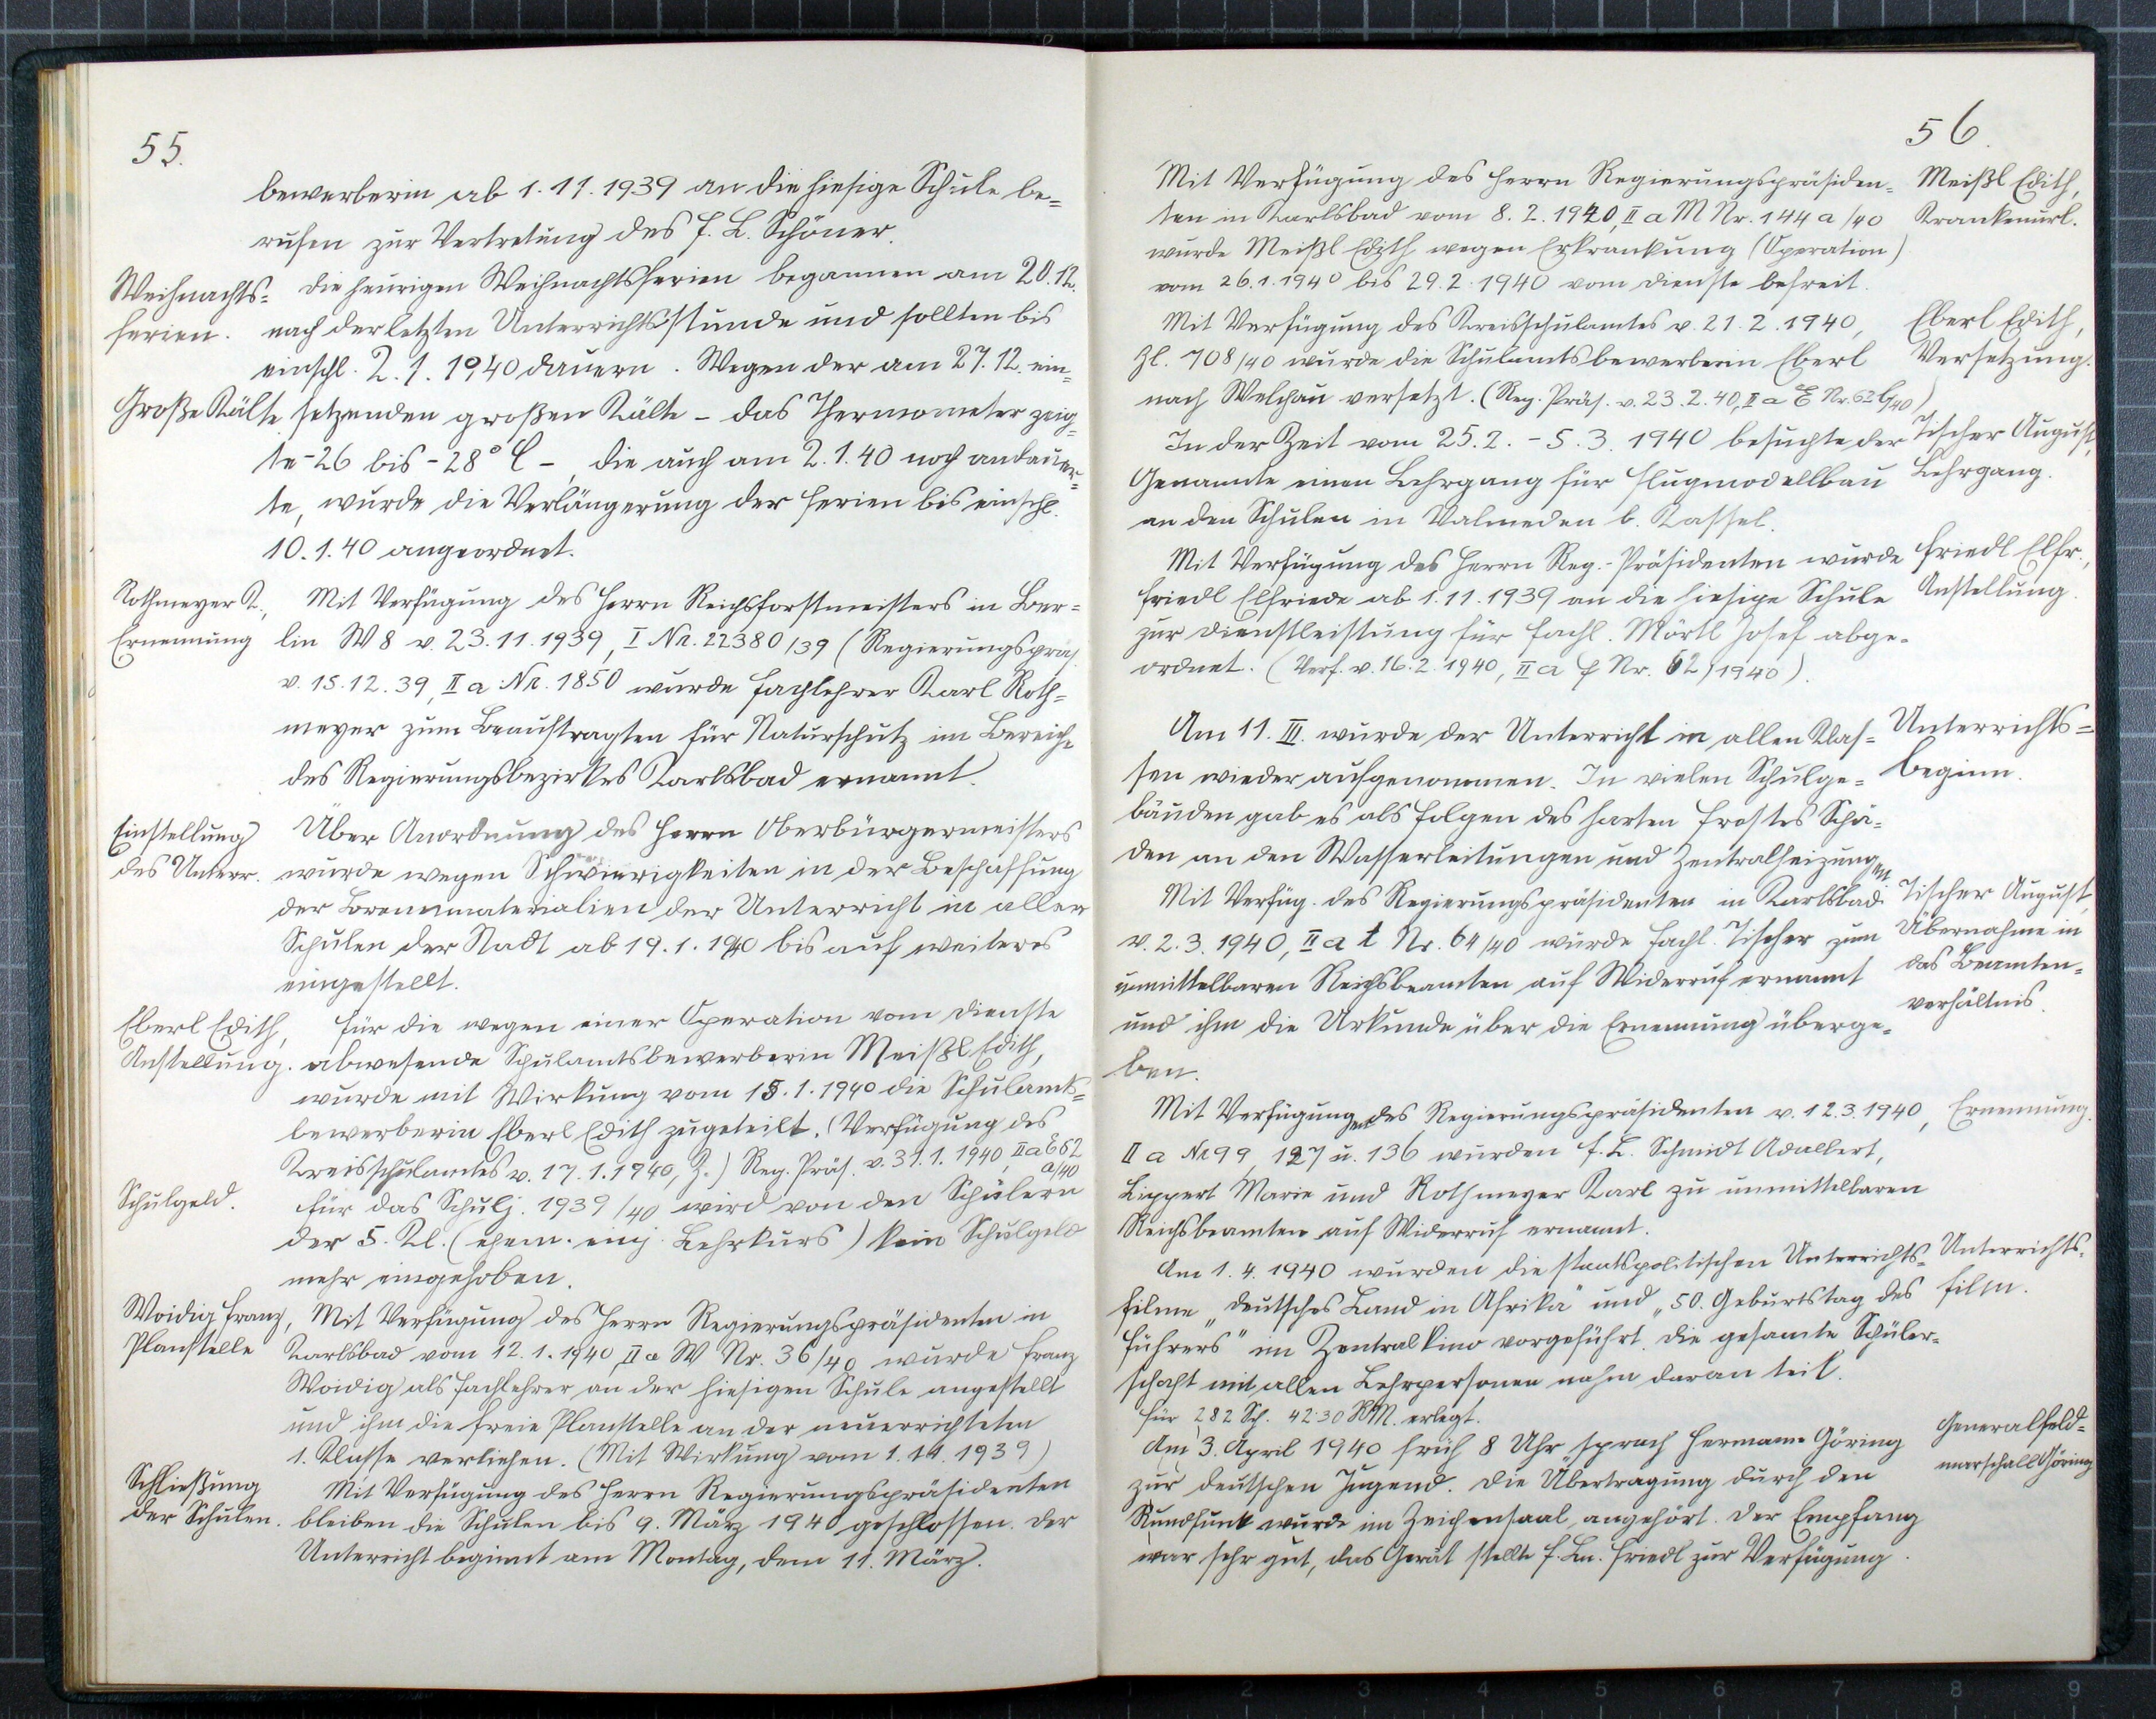 55.
bewerberin ab 1.11.1939 an die hiesige Schule be-
rufen zur Vertretung des F. L. Schöner.
Weihnachts- Die heurigen Weihnachtsferien begannen am 20.12.
ferien. nach der letzten Unterrichtsstunde und sollten bis
einschl. 2.1.1940 dauern. Wegen der am 27.12. ein-
Große Kälte setzenden großen Kälte – das Thermometer zeig-
te -26 bis -28° C –, die auch am 2.1.40 noch andauer-
te, wurde die Verlängerung der Ferien bis einschl.
10.1.40 angeordnet.
Rothmeyer K., Mit Verfügung des Herrn Reichsforstmeisters in Ber-
Ernennung lin W 8 v. 23.11.1939, I Nr. 22380/39 (Regierungspräs.
v. 15.12.39, II a Nr. 1850 wurde Fachlehrer Karl Roth-
meyer zum Beauftragten für Naturschutz im Bereiche
des Regierungsbezirkes Karlsbad ernannt.
Einstellung Über Anordnung des Herrn Oberbürgermeisters
des Unterr. wurde wegen Schwierigkeiten in der Beschaffung
der Brennmaterialien der Unterricht in allen
Schulen der Stadt ab 19.1.1940 bis auf weiteres
eingestellt.
Eberl Edith, Für die wegen einer Operation vom Dienste
Anstellung. abwesende Schulamtsbewerberin Meißl Edith,
wurde mit Wirkung vom 18.1.1940 die Schulamts-
bewerberin Eberl Edith zugeteilt. (Verfügung des
Kreisschulamtes v. 17.1.1940, Z.) Reg. Präs. v. 31.1.1940, II a E 62
a/40
Schulgeld. Für das Schulj. 1939/40 wird von den Schülern
der 5. Kl. (ehem. einj. Lehrkurs) kein Schulgeld
mehr eingehoben.
Woidig Franz, Mit Verfügung des Herrn Regierungspräsidenten in
Planstelle Karlsbad vom 12.1.1940, II a W Nr. 36/40 wurde Franz
Woidig als Fachlehrer an der hiesigen Schule angestellt
und ihm die freie Planstelle an der neuerrichteten
1. Klasse verliehen. (Mit Wirkung vom 1.11.1939)
Schließung Mit Verfügung des Herrn Regierungspräsidenten
der Schulen. bleiben die Schulen bis 9. März 1940 geschlossen. Der
Unterricht beginnt am Montag, dem 11. März.
56.
Mit Verfügung des Herrn Regierungspräsiden- Meißl Edith,
ten in Karlsbad vom 8.2.1940, II a M Nr. 144 a/40 Krankenurl.
wurde Meißl Edith wegen Erkrankung (Operation)
vom 26.1.1940 bis 29.2.1940 vom Dienste befreit.
Mit Verfügung des Kreisschulamtes v. 21.2.1940, Eberl Edith,
Zl. 708/40 wurde die Schulamtsbewerberin Eberl Versetzung.
nach Welchau versetzt. (Reg. Präs. v. 23.2.40, II a E Nr. 62 b/40)
In der Zeit vom 25.2. – 5.3.1940 besuchte der Tischer August,
Genannte einen Lehrgang für Flugmodellbau Lehrgang.
an den Schulen in Valmeden b. Kassel.
Mit Verfügung des Herrn Reg.-Präsidenten wurde Friedl Elfr.,
Friedl Elfriede ab 1.11.1939 an die hiesige Schule Anstellung.
zur Dienstleistung für Fachl. Mörtl Josef abge-
ordnet. (Verf. v. 16.2.1940, II a F Nr. 62/1940).
Am 11. III. wurde der Unterricht in allen Klas- Unterrichts-
sen wieder aufgenommen. In vielen Schulge- beginn.
bäuden gab es als Folgen des harten Frostes Schä-
den an den Wasserleitungen und Zentralheizungen.
Mit Verfüg. des Regierungspräsidenten in Karlsbad Tischer August,
v. 2.3.1940, II a t Nr. 64/40 wurde Fachl. Tischer zum Übernahme in
unmittelbaren Reichsbeamten auf Widerruf ernannt das Beamten-
und ihm die Urkunde über die Ernennung überge- verhältnis.
ben.
Mit Verfügungen des Regierungspräsidenten v. 12.3.1940, Ernennung.
II a Nr 99, 127 u. 136 wurden F. L. Schmidt Adalbert,
Lippert Marie und Rothmeyer Karl zu unmittelbaren
Reichsbeamten auf Widerruf ernannt.
Am 1.4.1940 wurden die staatspolitischen Unterrichts- Unterrichts-
filme „Deutsches Land in Afrika“ und „50. Geburtstag des film.
Führers“ im Zentralkino vorgeführt. Die gesamte Schüler-
schaft mit allen Lehrpersonen nahm daran teil.
Für 282 Sch. 42·30 RM. erlegt.
Am 3. April 1940 früh 8 Uhr sprach Hermann Göring Generalfeld-
zur deutschen Jugend. Die Übertragung durch den marschall Göring
Rundfunk wurde im Zeichensaal angehört. Der Empfang
war sehr gut, das Gerät stellte F. Ln. Friedl zur Verfügung.
1 2 3 4 5 6 7 8 9